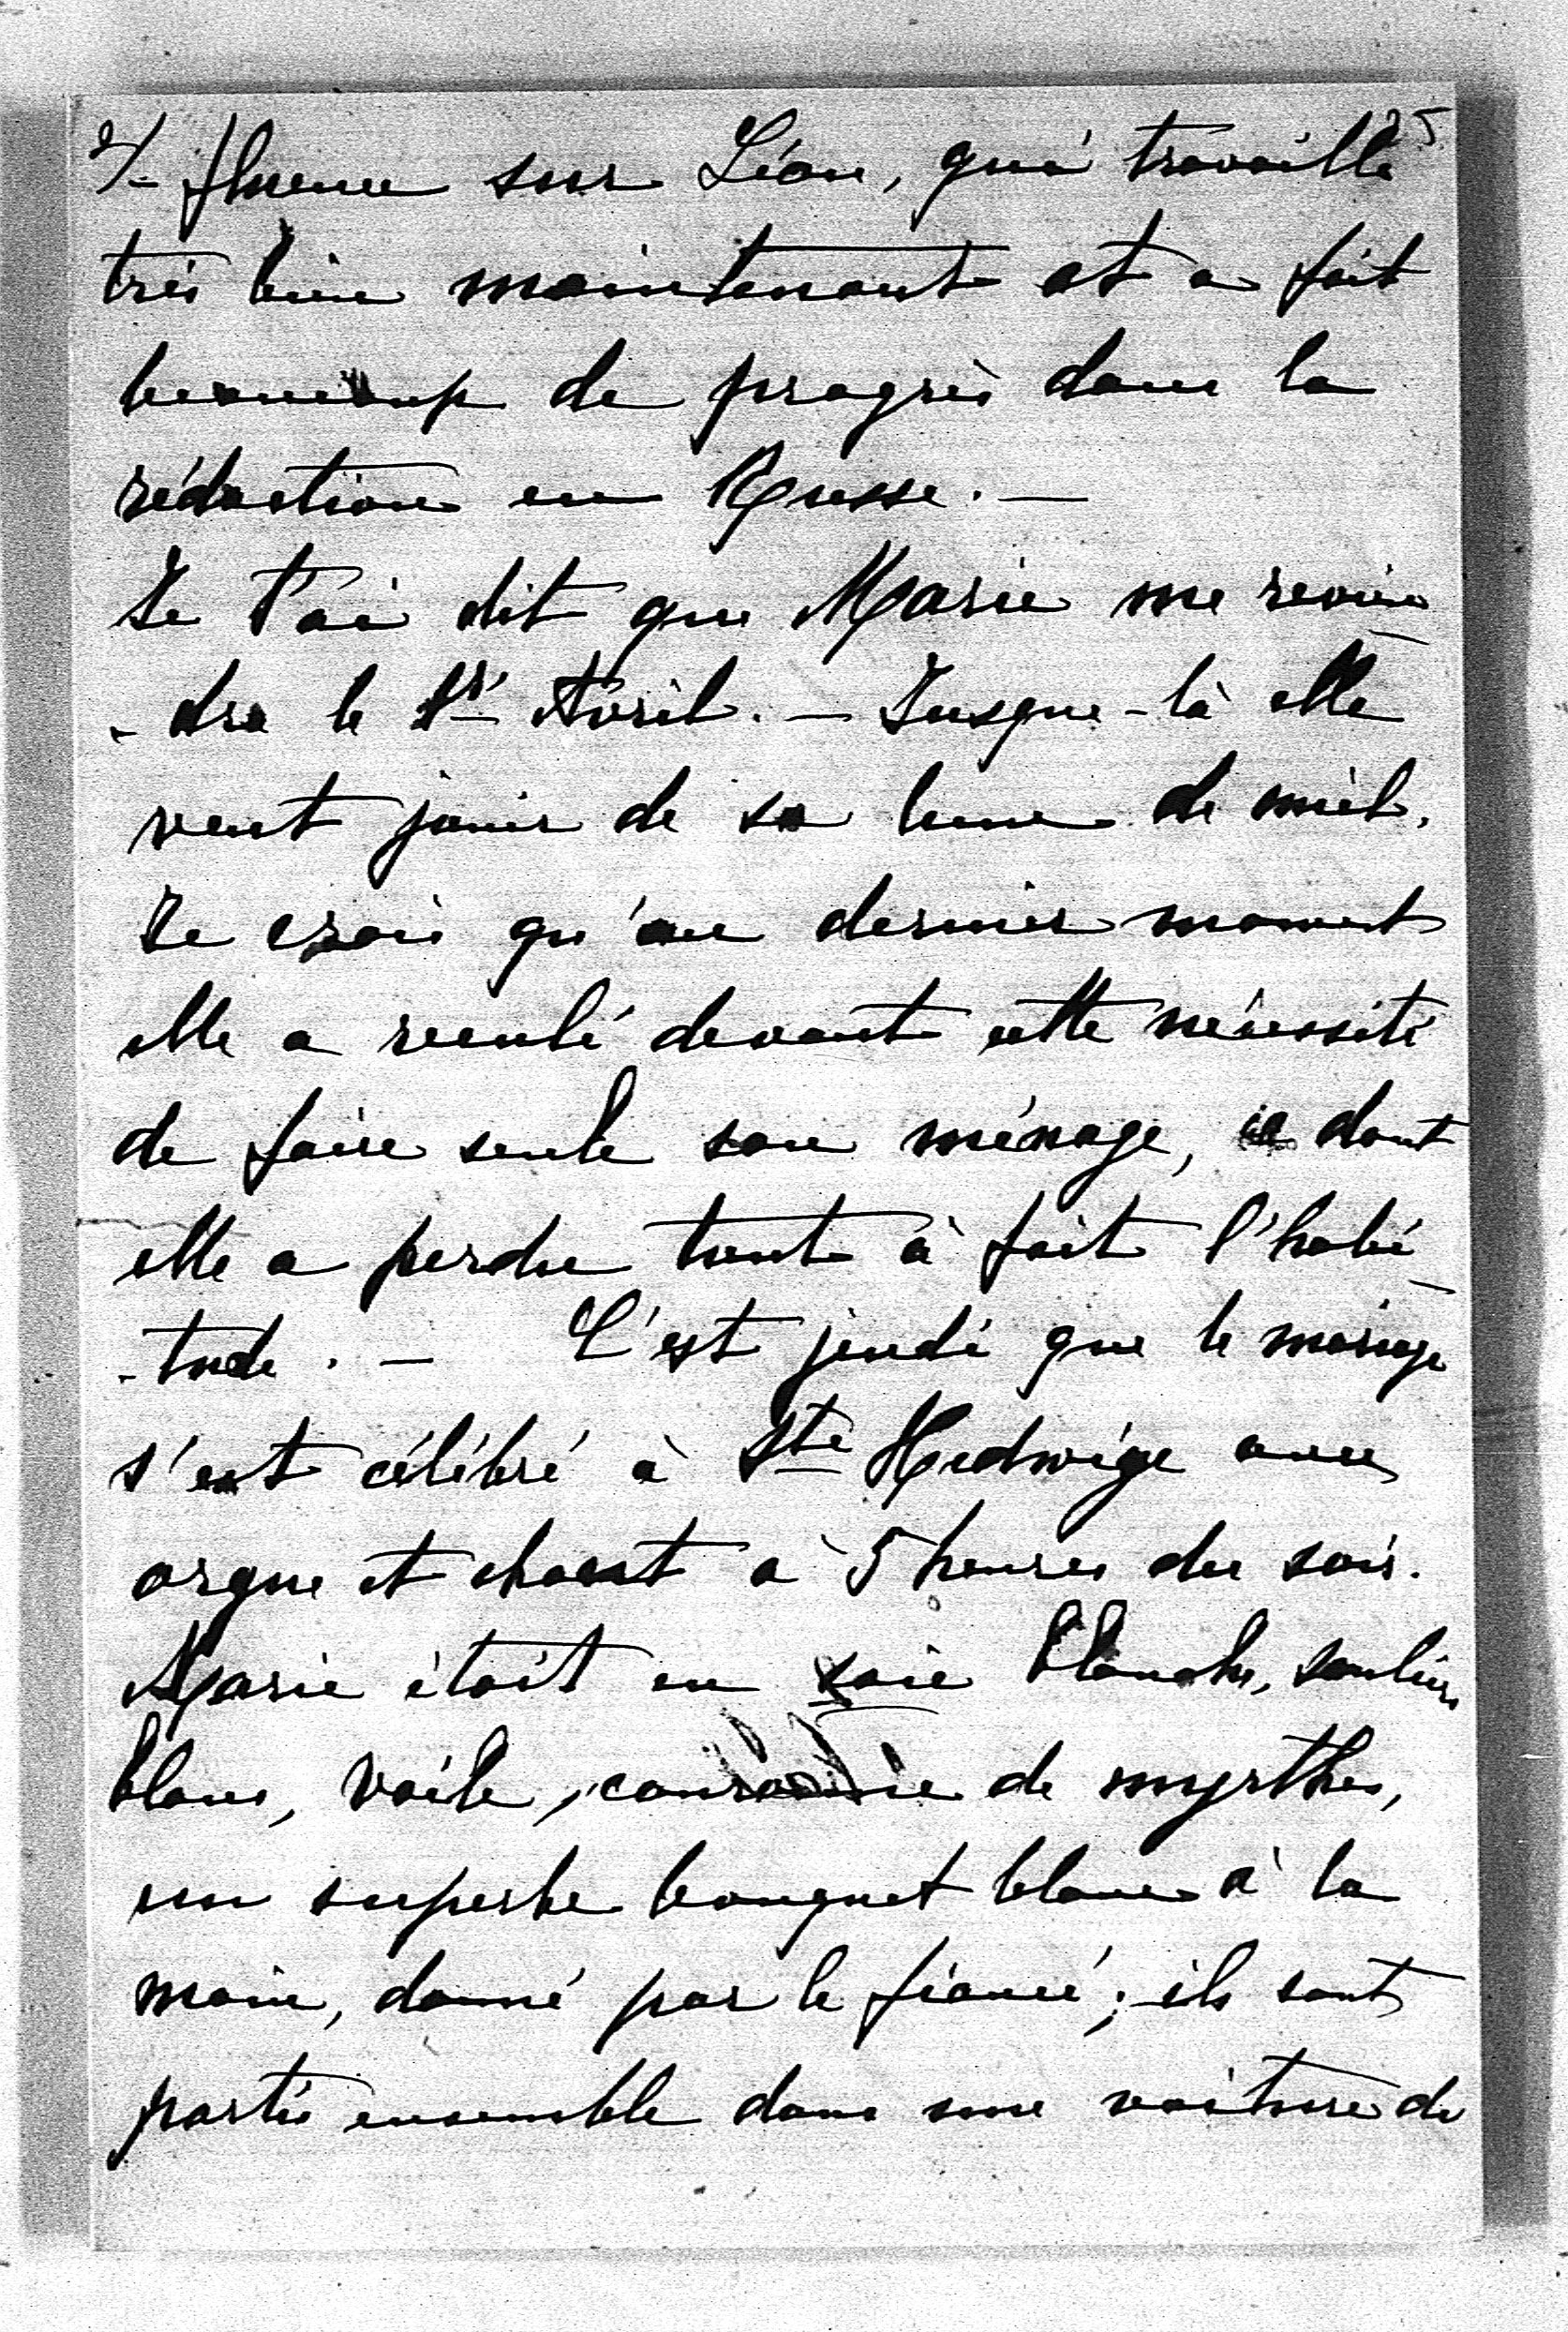 2/- fluence sur Léon, qui travaille
très bien maintenant et a fait
beaucoup de progrès dans la
rédaction en Russe. —
Je t'ai dit que Marie me revien-
- dra le 1r Avril. — Jusque-là elle
veut jouir de sa lune de miel.
Je crois qu'au dernier moment
elle a reculé devant cette nécessité
de faire seule son ménage, ce dont
elle a perdu tout à fait l'habi-
- tude. — C'est jeudi que le mariage
s'est célébré à Ste Hedwige avec
orgue et chant à 5 heures du soir.
Marie était en soie blanche, souliers
blancs, voile, couronne de myrthes,
un superbe bouquet blanc à la
main, donné par le fiancé; ils sont
partis ensemble dans une voiture de